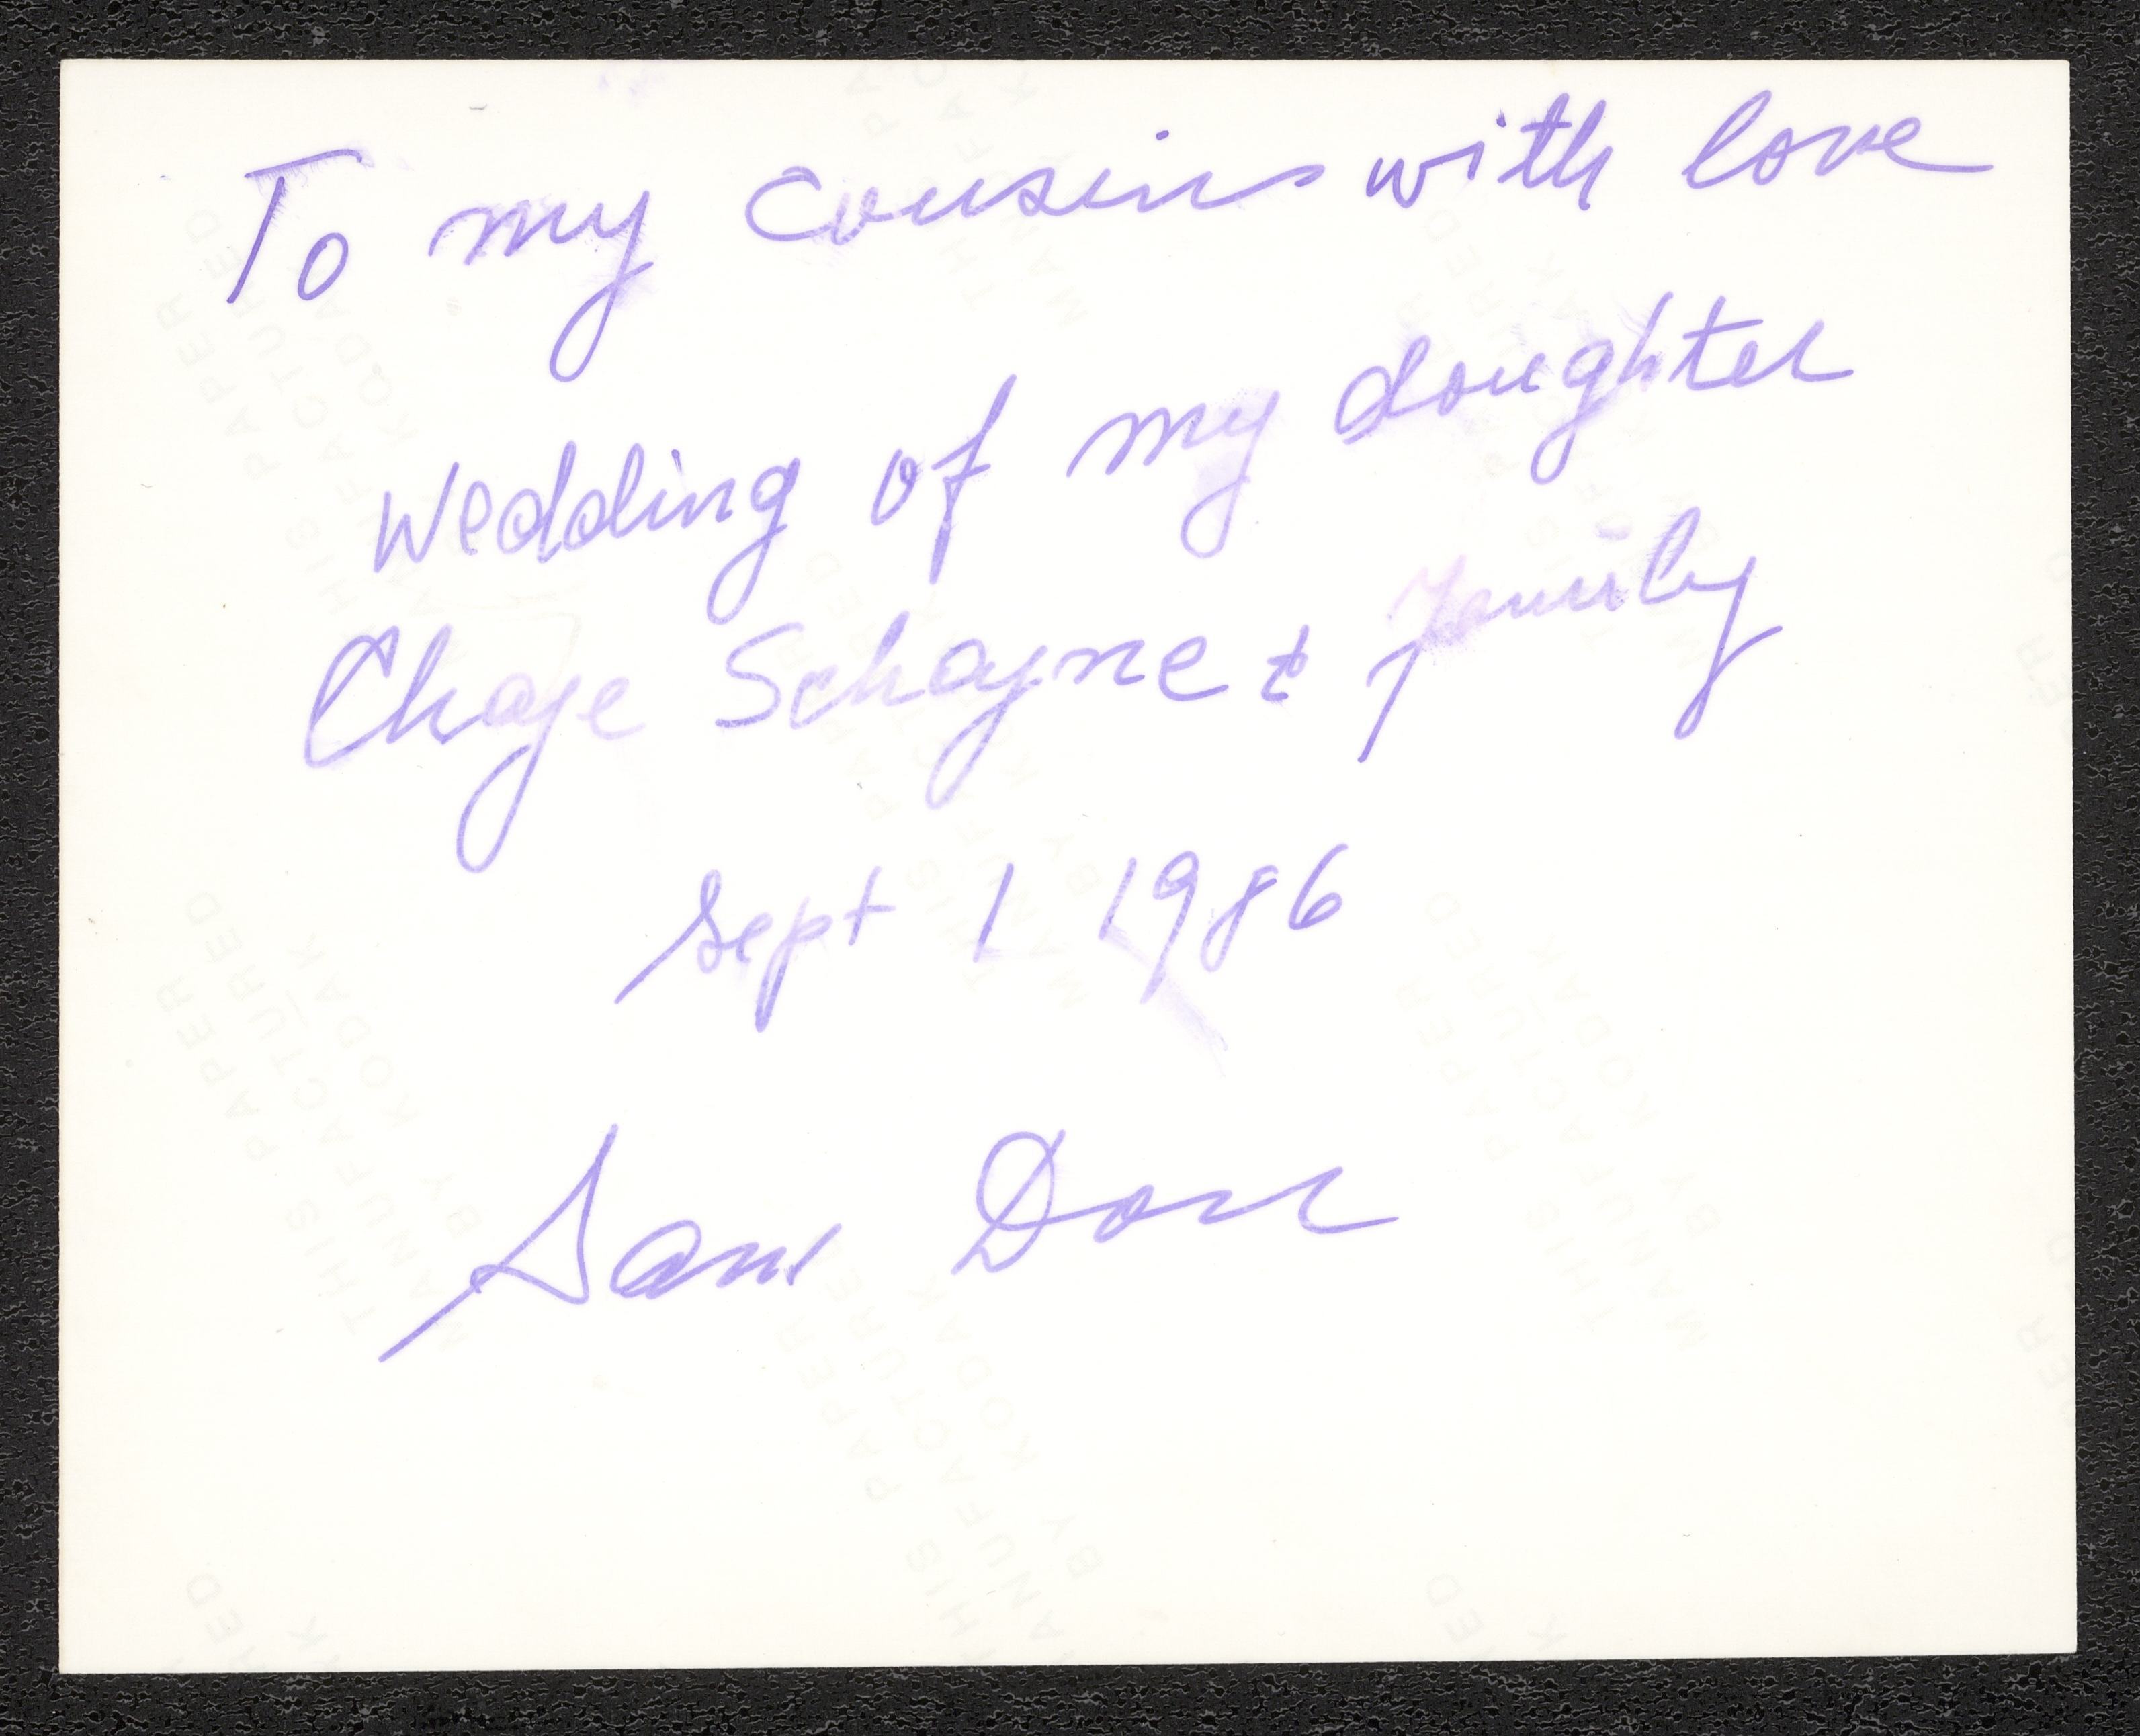 To my cousins with love
Wedding of my doughter
Chaje Schajne & family
Sept 1 1986
Sam Dorr
THIS PAPER
MANUFACTURED
BY KODAK